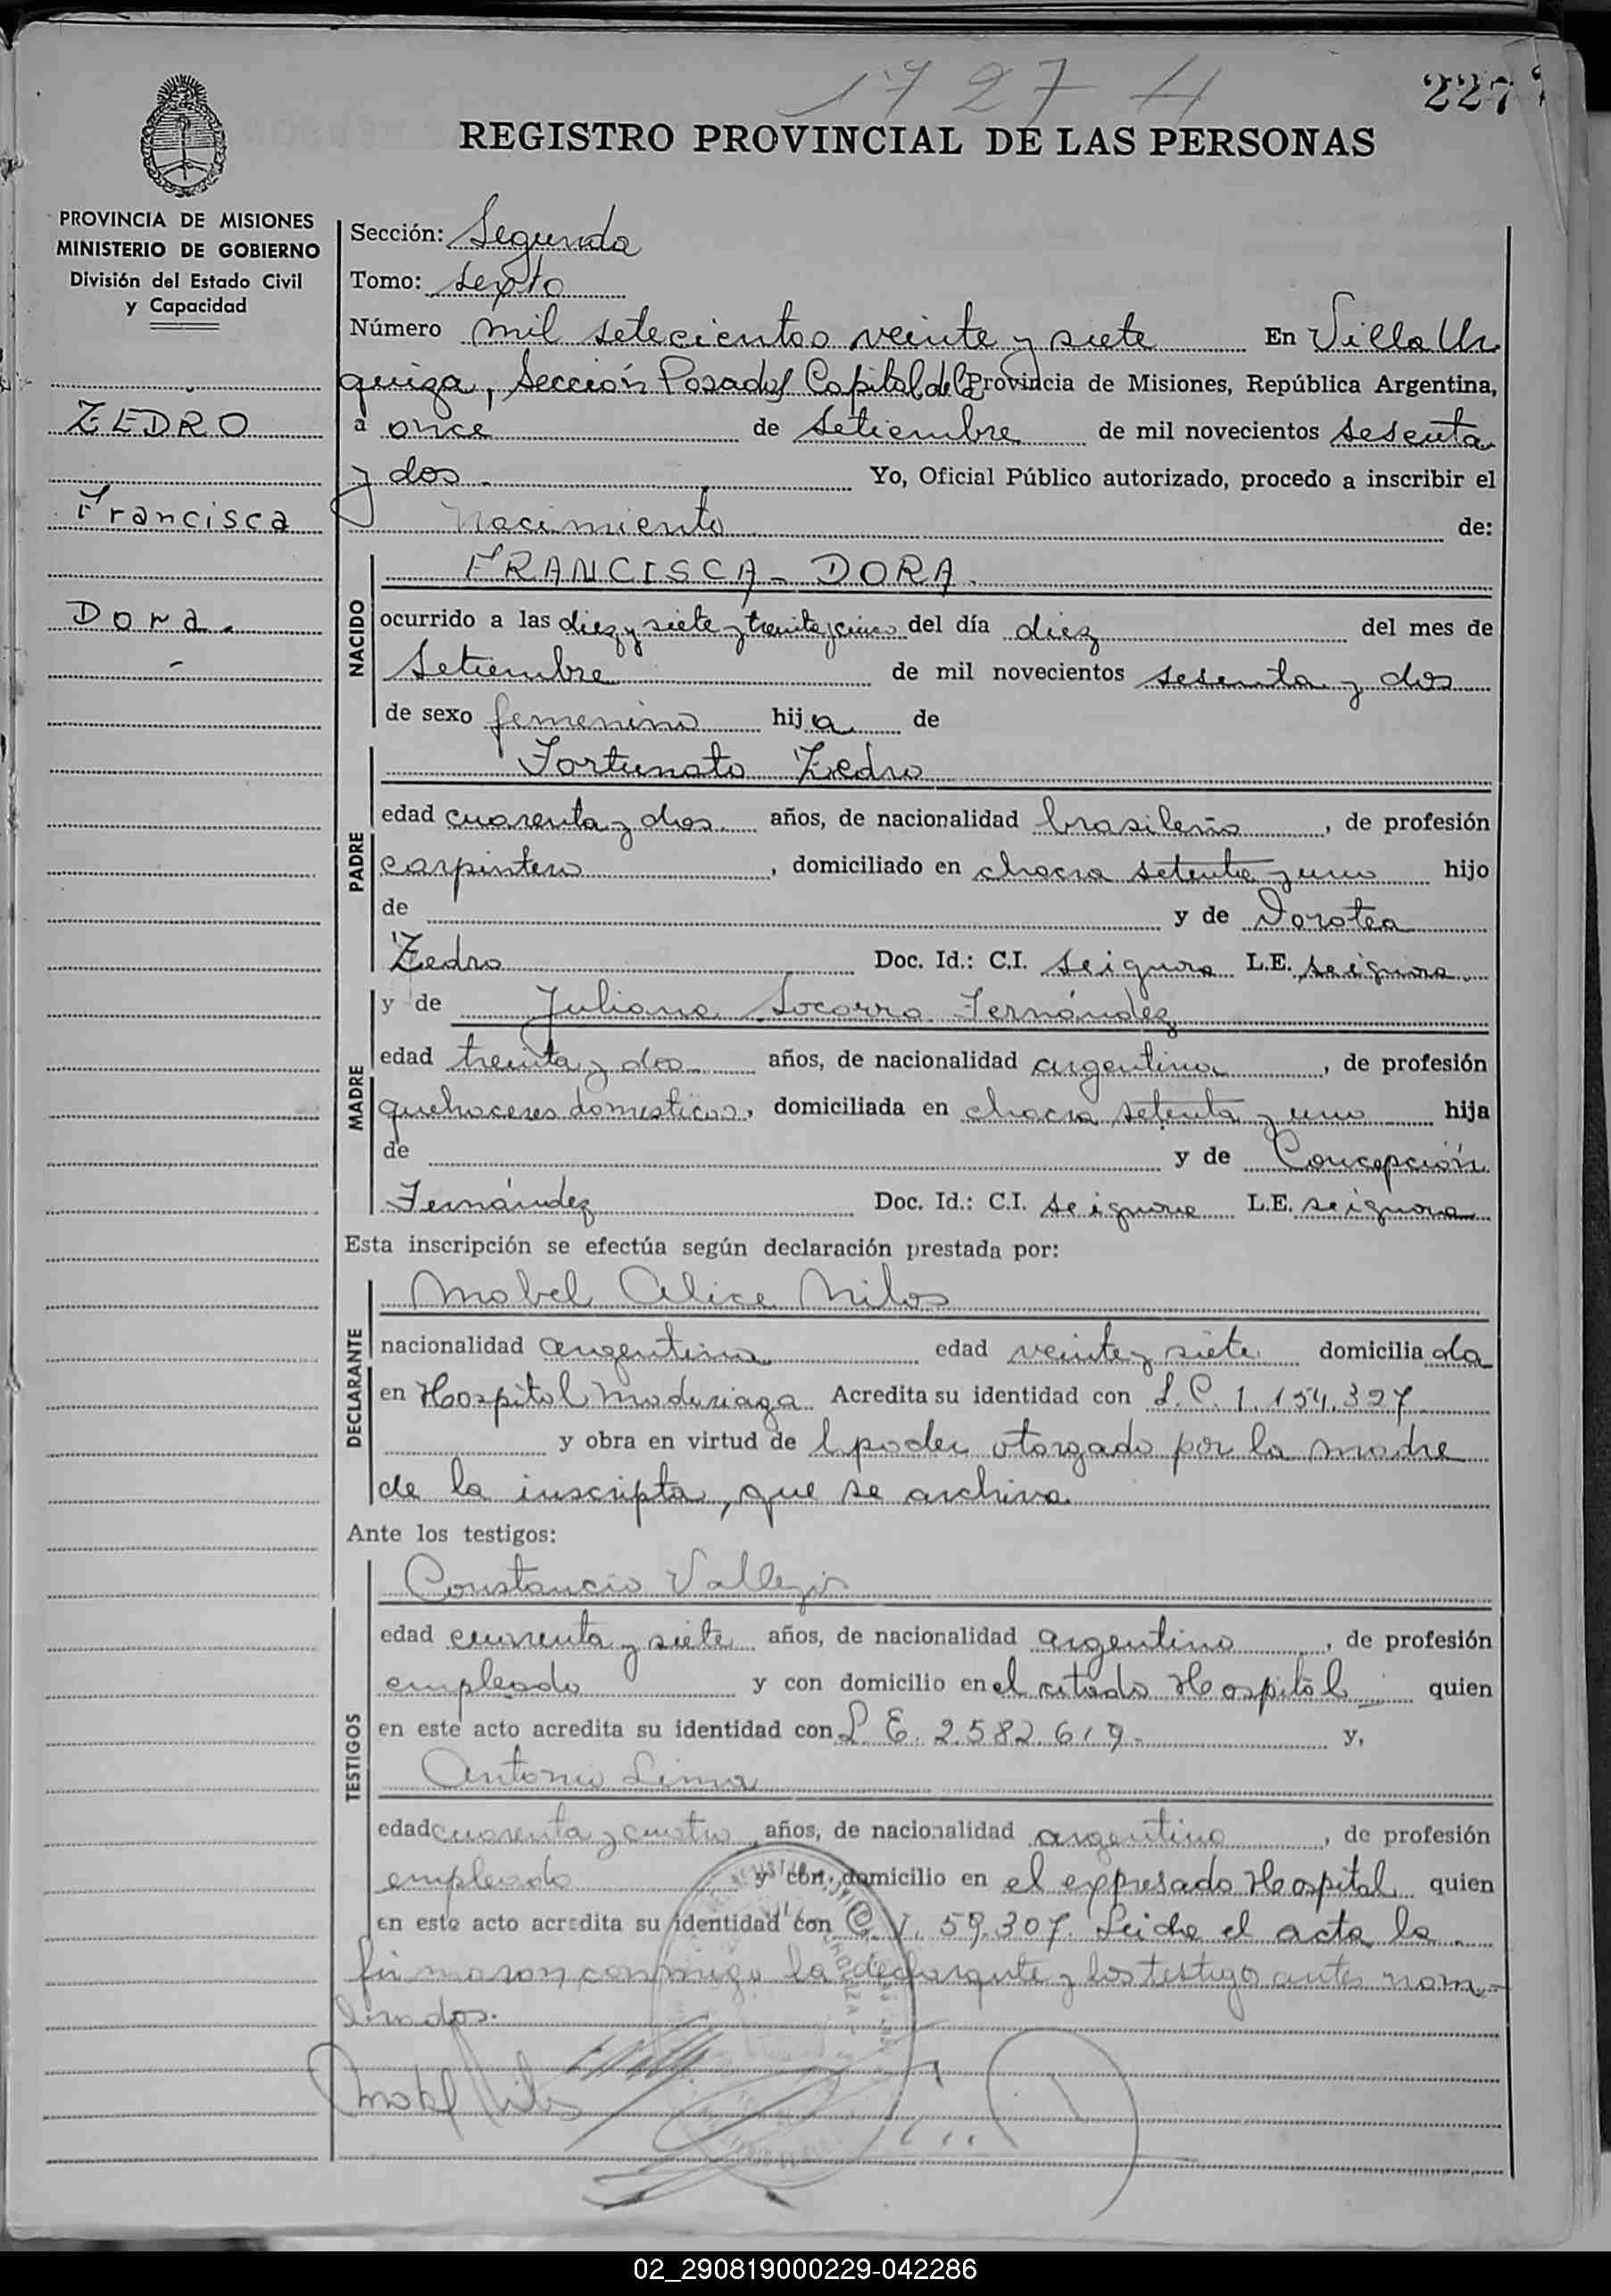 1727 4
227
REGISTRO PROVINCIAL DE LAS PERSONAS
PROVINCIA DE MISIONES
MINISTERIO DE GOBIERNO
División del Estado Civil
y Capacidad
ZEDRO
Francisca
Dora.
Sección: Segunda
Tomo: sexto
Número mil setecientos veinte y siete En Villa Ur
quiza, Sección Posadas Capital de la Provincia de Misiones, República Argentina,
a once de Setiembre de mil novecientos sesenta
y dos. Yo, Oficial Público autorizado, procedo a inscribir el
Nacimiento de:
NACIDO
FRANCISCA - DORA.
ocurrido a las diez y siete y treinta y cinco del día diez del mes de
Setiembre de mil novecientos sesenta y dos
de sexo femenino hija de
PADRE
Fortunato Zedro
edad cuarenta y dos años, de nacionalidad brasileño, de profesión
carpintero, domiciliado en chacra setenta y uno hijo
de y de Dorotea
Zedro Doc. Id.: C.I. se ignora L.E. se ignora.
MADRE
y de Juliana Socorro Fernández
edad treinta y dos años, de nacionalidad argentina, de profesión
quehaceres domesticos, domiciliada en chacra setenta y uno hija
de y de Concepción
Fernández Doc. Id.: C.I. se ignora L.E. se ignora
Esta inscripción se efectúa según declaración prestada por:
DECLARANTE
Mabel Alice Milos
nacionalidad argentina edad veinte y siete domiciliada
en Hospital Madariaga Acredita su identidad con L.C. 1.154.327
y obra en virtud de l poder otorgado por la madre
de la inscripta, que se archiva
Ante los testigos:
TESTIGOS
Constancio Vallejos
edad cuarenta y siete años, de nacionalidad argentino, de profesión
empleado y con domicilio en el citado Hospital quien
en este acto acredita su identidad con L.E. 2.582.619. y,
Antonio Lima
edad cuarenta y cuatro años, de nacionalidad argentino, de profesión
empleado y con domicilio en el expresado Hospital quien
en este acto acredita su identidad con C.I. 59.307. Leida el acta la
firmaron conmigo la declarante y los testigo antes nom-
brados.
02_290819000229-042286